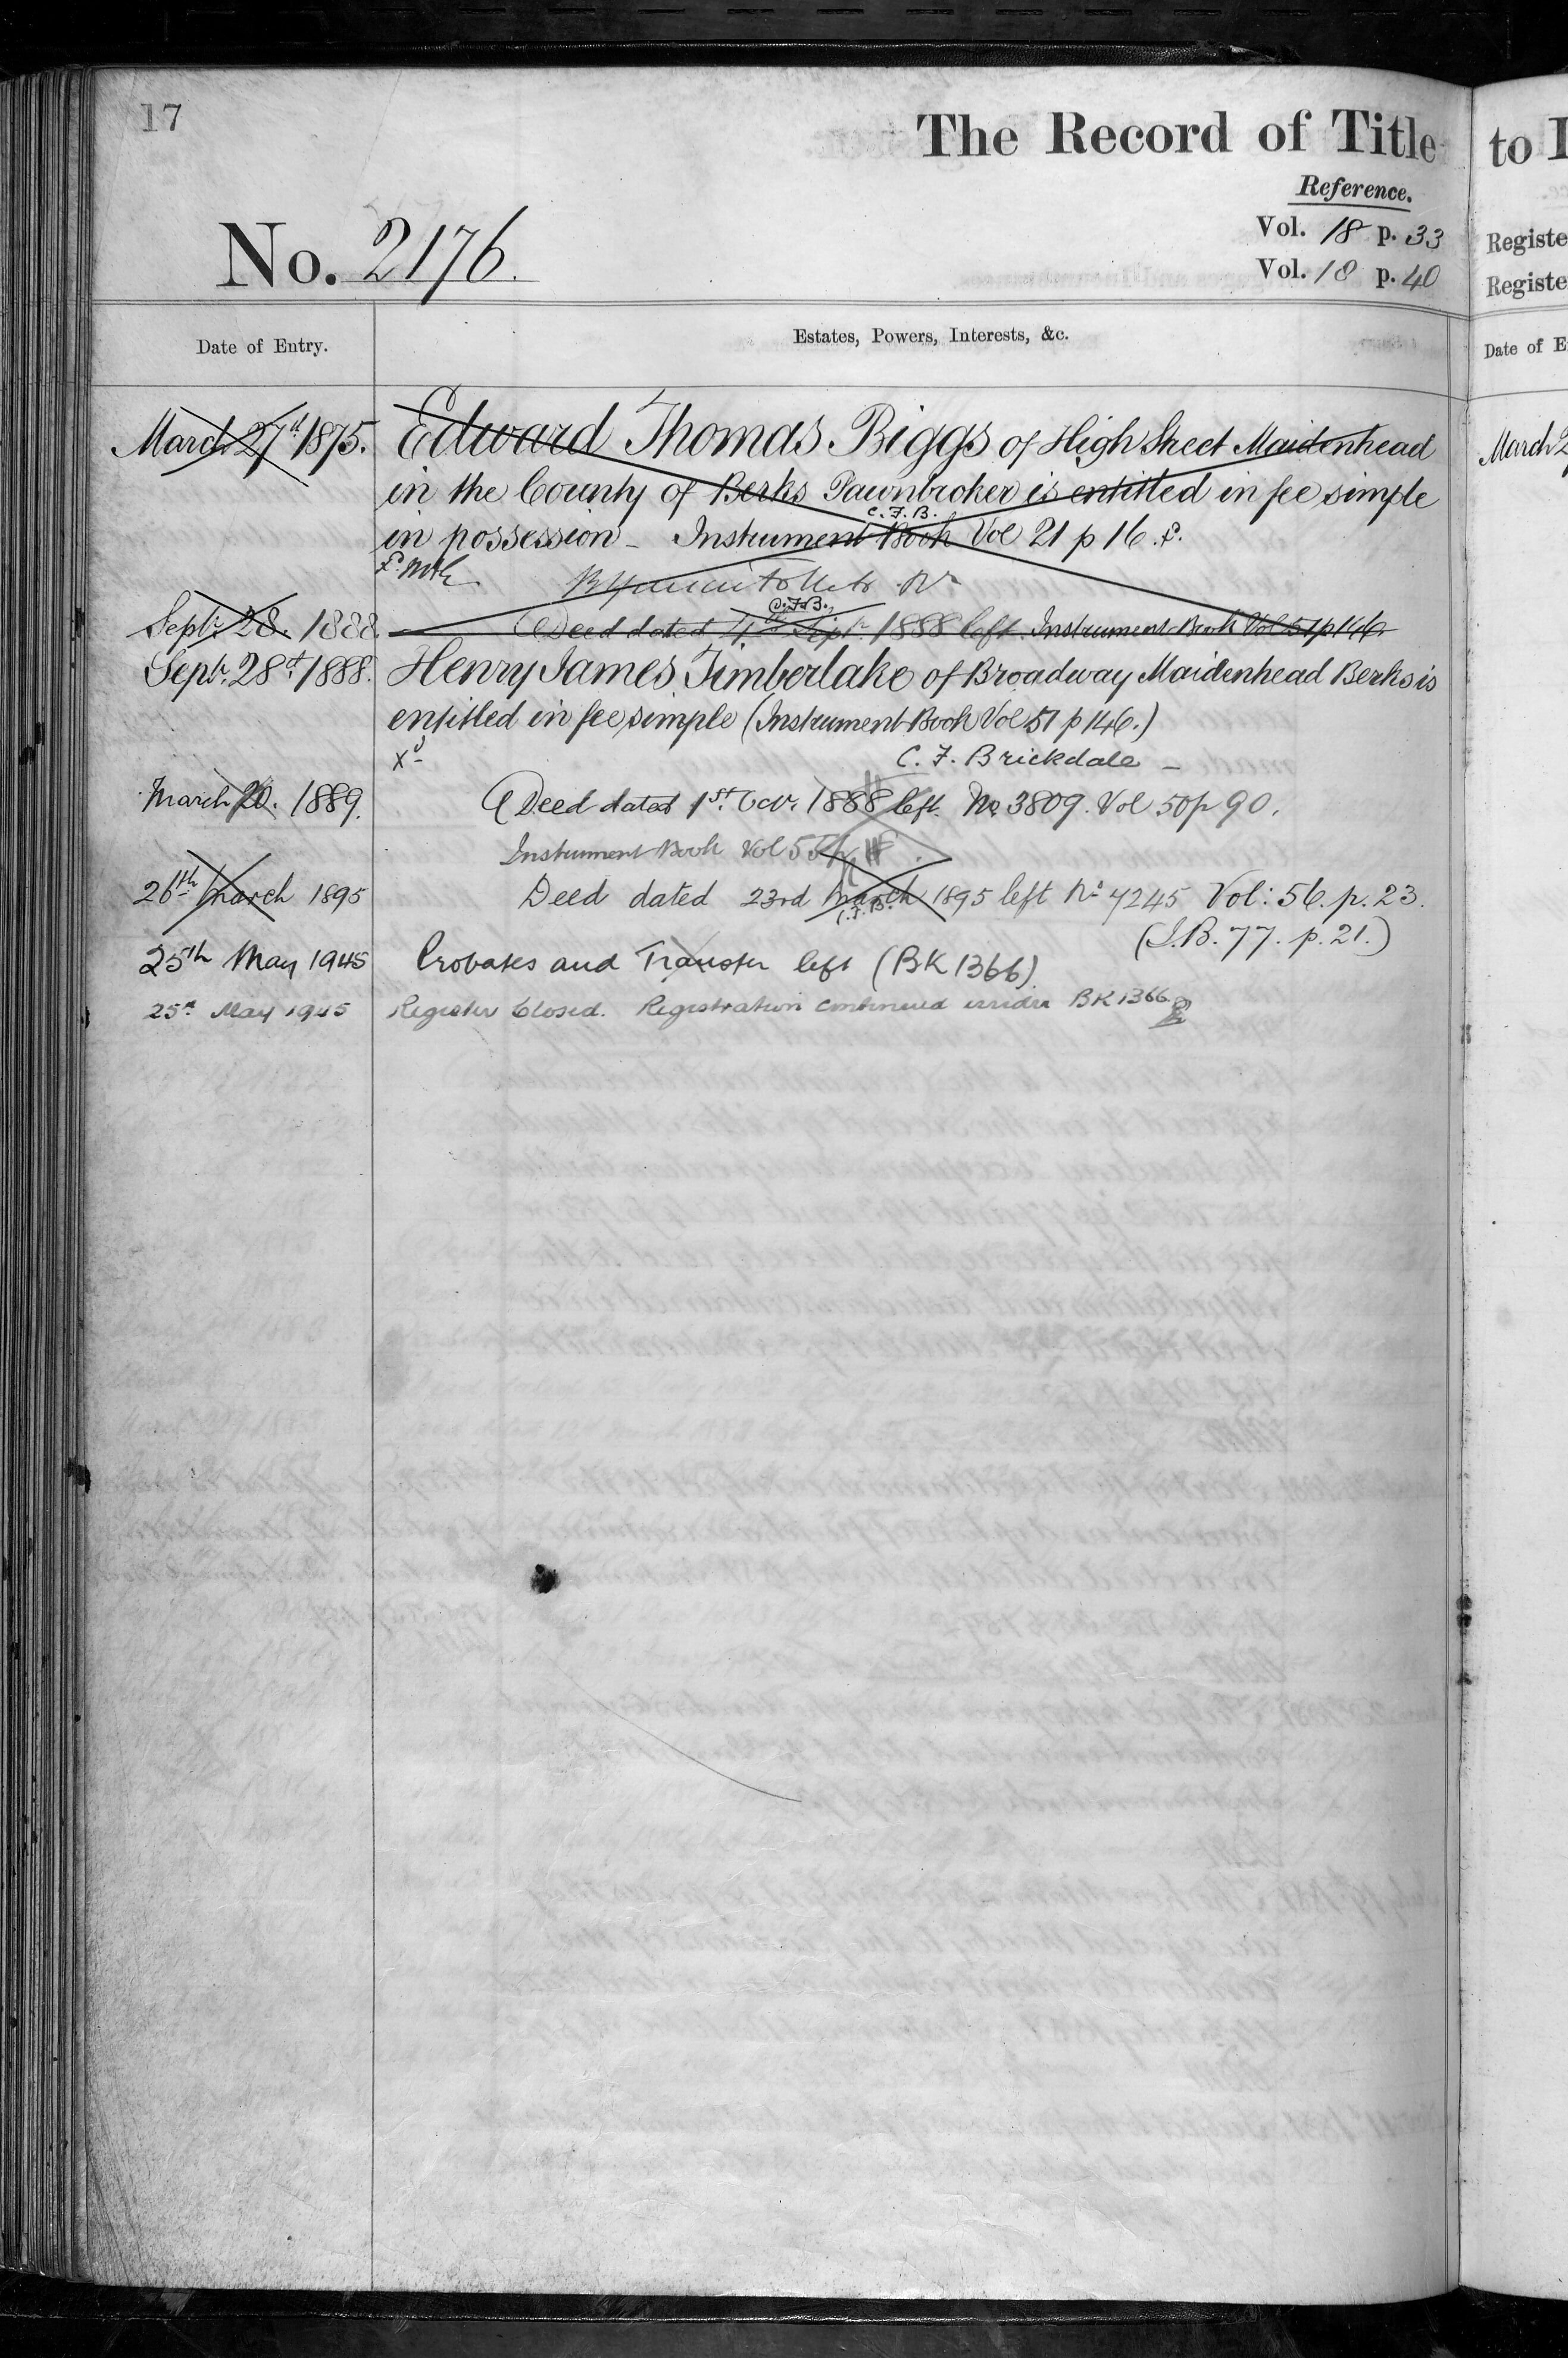 17
The Record of Title
to
Reference.
Vol. 18 p. 33
Registe
No. 2176.
Vol. 18 p. 40
Registe
Date of Entry.
Estates, Powers, Interests, &c.
Date of E
March 27th 1875.
Edward Thomas Biggs of High Street Maidenhead
March 2
in the County of Berks Pawnbroker is entitled in fee simple
C. F. B.
in possession - Instrument Book Vol 21 p 16.
C.F.B.
Septr. 28. 1888.
Deed dated 4th Septr. 1888 left. Instrument Book Vol 51 p 146.
Septr. 28th 1888.
Henry James Timberlake of Broadway Maidenhead Berks is
entitled in fee simple (Instrument Book Vol 51 p 146.)
C. F. Brickdale -
March 20. 1889.
Deed dated 1st. Octr. 1888 left. No 3809. Vol 50 p 90.
Instrument Book Vol 55
26th March 1895
Deed dated 23rd March 1895 left No 4245 Vol: 56. p. 23.
C.F.B.
(I.B. 77. p. 21.)
25th May 1945
Probates and Transfer left (BK 1366)
25th May 1945
Register Closed. Registration continued under BK 1366